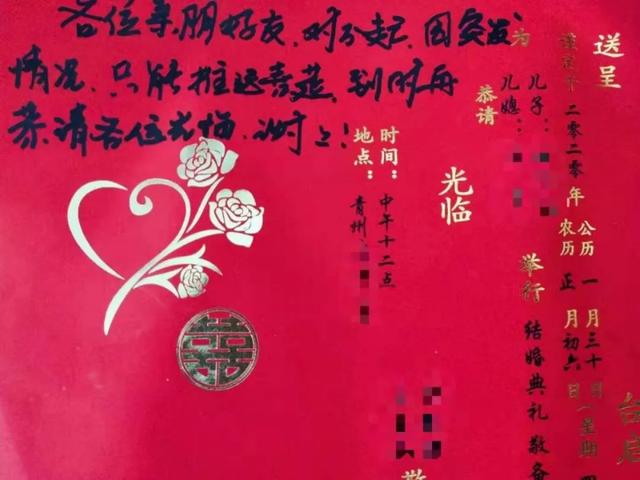 各位亲朋好友、对不起、因突发
情况、只能推迟喜筵、到时再
恭请各位光临、
送呈
台启
谨定于二零二零年公历一月三十日(星期四
农历正月初六日
为
儿子：
儿媳：
举行结婚典礼敬备
恭请
光临
时间：中午十二点
地点：青州
敬